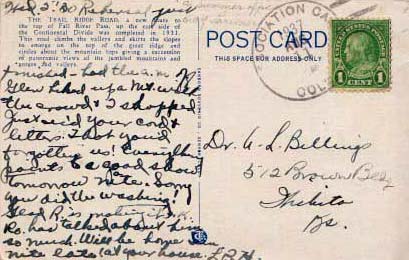 Wed. S. Bo Rehearsal just
THE TRAIL RIDGE ROAD, a new route to
the top of Fall River Pass, up the east side of
the Continental Divide was completed in 1932.
This road climbs the valleys and skirts the slopes
to emerge on the top of the great ridge and
circles about the mountain tops giving a succession
of panoramic views of the jumbled mountains and
gorges and valleys.
finished - had the a.m. off
Glen hiked up a Mt. with
the crowd & I shopped
Just rec'd your card &
letter. I tho't you'd
forgotten us! Everything
points to a good show
tomorrow nite. Sorry
you did the washing!
Glad R. is making it. K.
Ro. has talked about him
so much. Will be home Sun
nite late (at your house. L.R.H.
ASSOCIATION CA
COLO
POST CARD
THIS SPACE FOR ADDRESS ONLY
1 CENT 1
Dr. A. L. Billings
512 Brown Bldg
Wichita
Ks.